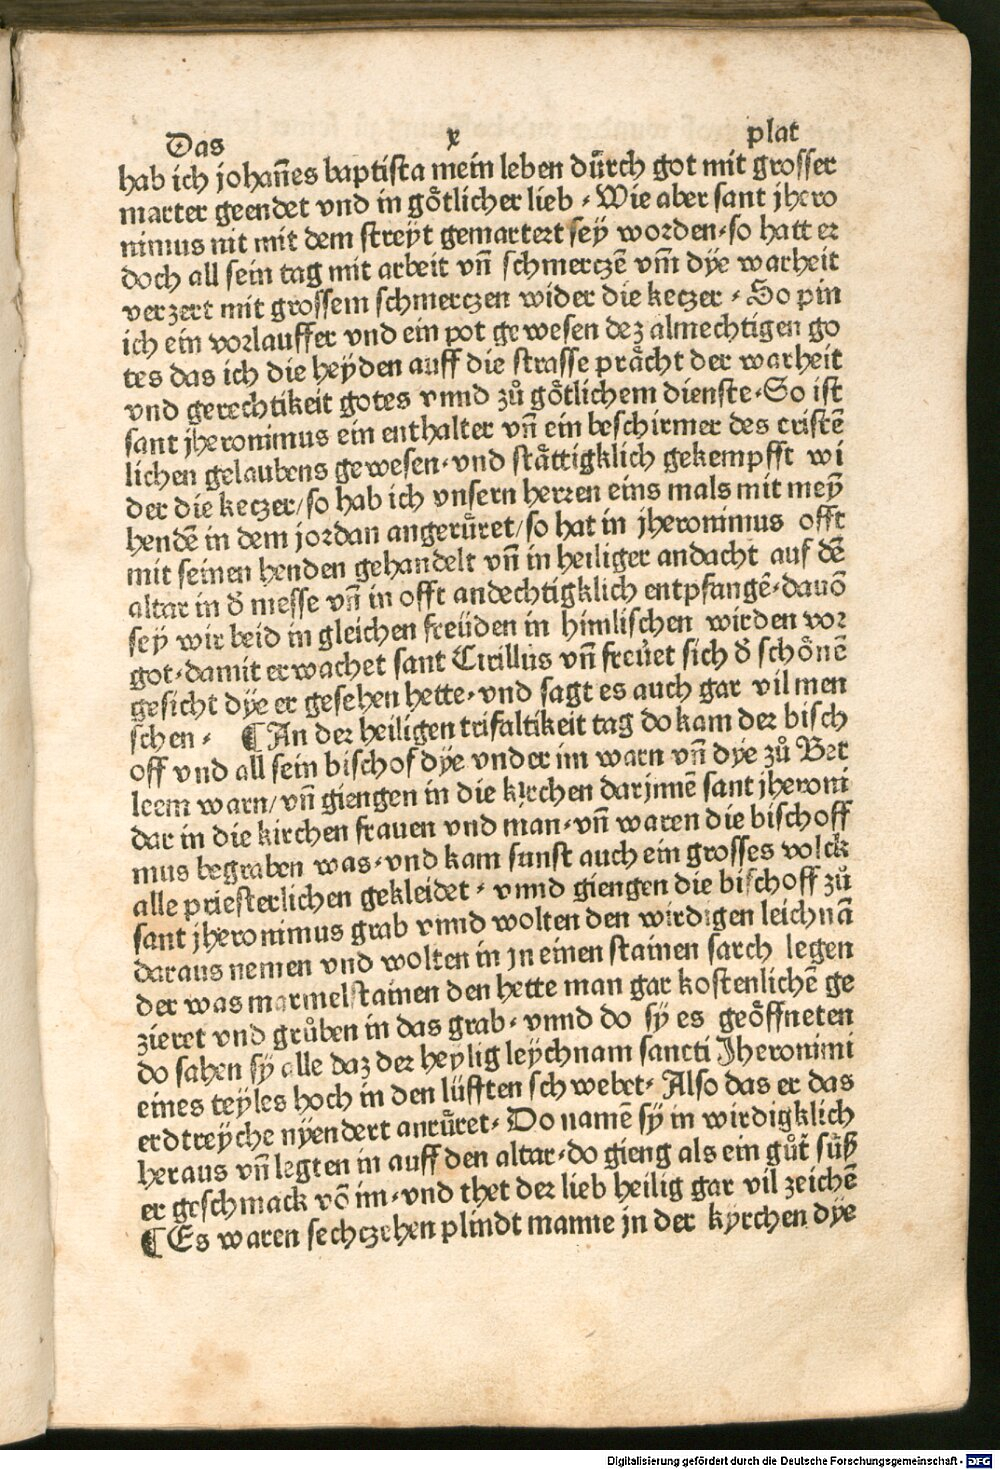 Das x plat
hab ich johan̄es baptista mein leben dürch got mit grosser
marter geendet vnd in gȯtlicher lieb · Wie aber sant jhero
nimus nit mit dem streyt gemartert sey worden · so hatt er
doch all sein tag mit arbeit vn̄ schmerczē vm̄ dÿe warheit
verzert mit grossem schmerczen wider die keczer · So pin
ich ein vorlauffer vnd ein pot gewesen dez almechtigen go
tes das ich die heÿden auff die strasse prächt der warheit
vnd gerechtikeit gotes vnnd zů gȯtlichem dienste · So ist
sant jheronimus ein enthalter vn̄ ein beschirmer des cristē
lichen gelaubens gewesen · vnd stättigklich gekempfft wi
der die keczer / so hab ich vnsern herren eins mals mit meÿ
hendē in dem jordan angerůret / so hat in jheronimus offt
mit seinen henden gehandelt vn̄ in heiliger andacht auf dē
altar in d̄ messe vn̄ in offt andechtigklich entpfangē · dauō
seÿ wir beid in gleichen freüden in himlischen wirden vor
got · damit erwachet sant Cirillus vn̄ freüet sich d̄ schȯnē
gesicht dÿe er gesehen hette · vnd sagt es auch gar vil men
schen · ¶ An der heiligen trifaltikeit tag do kam der bisch
off vnd all sein bischof dÿe vnder im warn vn̄ dÿe zů Bet
leem warn / vn̄ giengen in die kirchen darjnnē sant jheroni
dar in die kirchen frauen vnd man · vn̄ waren die bischoff
mus begraben was · vnd kam sunst auch ein grosses volck
alle priesterlichen gekleidet · vnnd giengen die bischoff zů
sant jheronimus grab vnnd wolten den wirdigen leichnā
daraus nemen vnd wolten in jn einen stainen sarch legen
der was marmelstainen den hette man gar kostenlichē ge
zieret vnd grůben in das grab · vnnd do sÿ es geȯffneten
do sahen sÿ alle daz der heÿlig leÿchnam sancti Jheronimi
eines teÿles hoch in den lüfften schwebet · Also das er das
erdtreÿche nÿendert anrůret · Do namē sÿ in wirdigklich
heraus vn̄ legten in auff den altar · do gieng als ein gůt süß
er geschmack vō im · vnd thet der lieb heilig gar vil zeichē
¶ Es waren sechczehen plindt manne jn der kyrchen dÿe
Digitalisierung gefördert durch die Deutsche Forschungsgemeinschaft - DFG